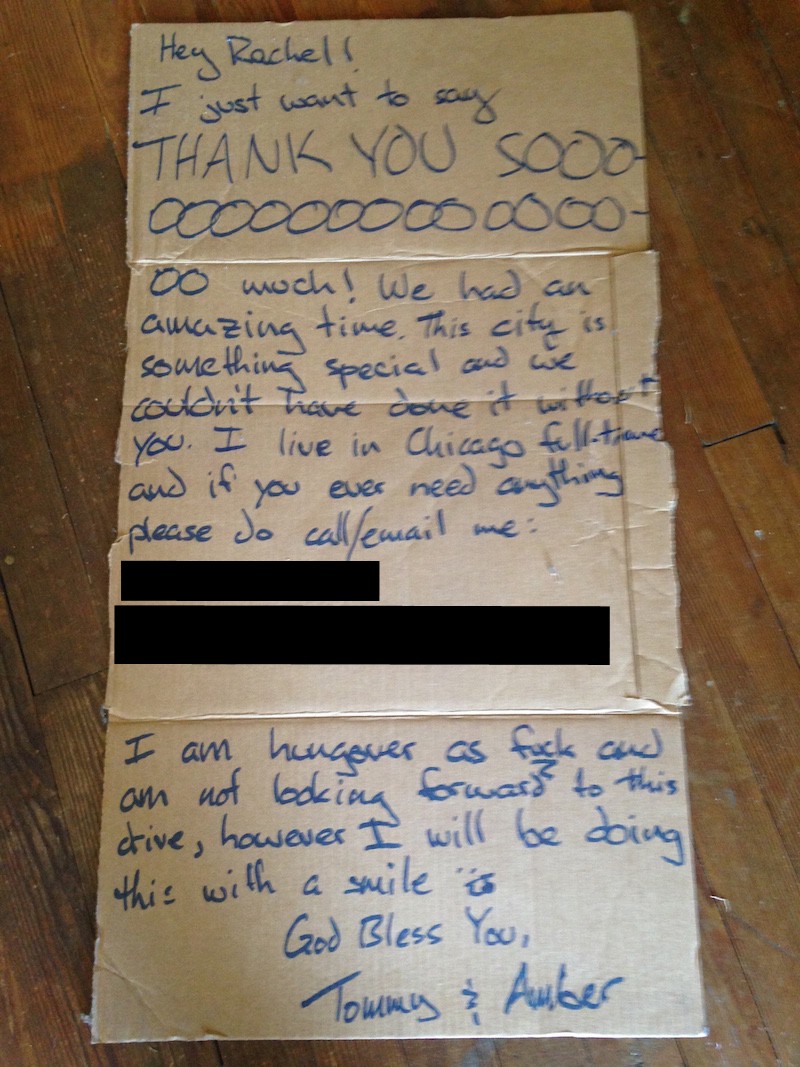 Hey Rachel!
I just want to say
THANK YOU SOOO-
OOOOOOOOOOOOOOO-
OO much! We had an
amazing time. This city is
something special and we
couldn't have done it without
you. I live in Chicago full-time
and if you ever need anything
please do call/email me:
I am hungover as fuck and
am not looking forward to this
drive, however I will be doing
this with a smile
God Bless You,
Tommy & Amber